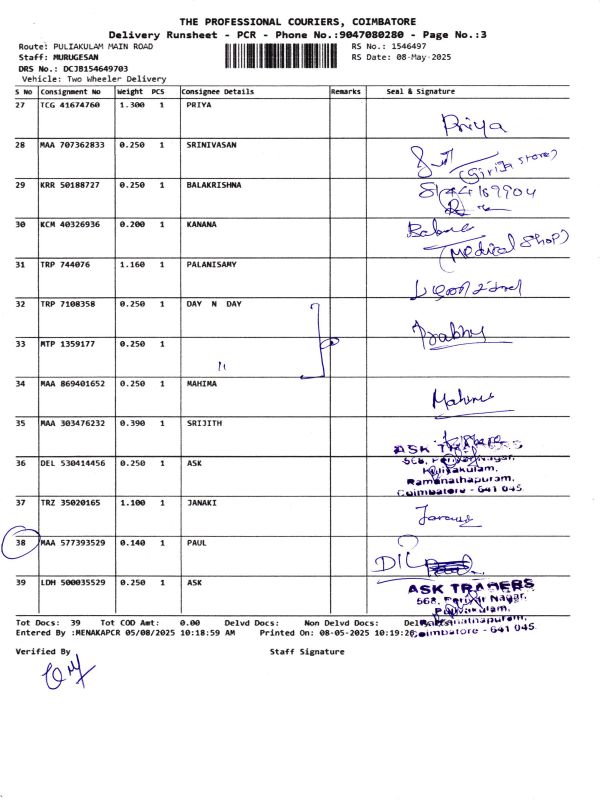 THE PROFESSIONAL COURIERS, COIMBATORE
Delivery Runsheet - PCR - Phone No.:9047080280 - Page No.:3
Route: PULIAKULAM MAIN ROAD RS No.: 1546497
Staff: MURUGESAN RS Date: 08-May-2025
DRS No.: DCJB154649703
Vehicle: Two Wheeler Delivery
S No Consignment No Weight PCS Consignee Details Remarks Seal & Signature
27 TCG 41674760 1.300 1 PRIYA
Priya
28 MAA 707362833 0.250 1 SRINIVASAN
(Girija store)
29 KRR 50188727 0.250 1 BALAKRISHNA
30 KCM 40326936 0.200 1 KANANA
(Medical Shop)
31 TRP 744076 1.160 1 PALANISAMY
32 TRP 7108358 0.250 1 DAY N DAY
Prabhu
33 MTP 1359177 0.250 1
"
34 MAA 869401652 0.250 1 MAHIMA
35 MAA 303476232 0.390 1 SRIJITH
36 DEL 530414456 0.250 1 ASK
ASK TRADERS
568, Periyar Nagar,
Puliyakulam,
Ramanathapuram,
Coimbatore - 641 045.
37 TRZ 35020165 1.100 1 JANAKI
38 MAA 577393529 0.140 1 PAUL
39 LDH 500035529 0.250 1 ASK
ASK TRADERS
568, Periyar Nagar,
Puliyakulam,
Ramanathapuram,
Coimbatore - 641 045.
Tot Docs: 39 Tot COD Amt: 0.00 Delvd Docs: Non Delvd Docs:
Entered By :MENAKAPCR 05/08/2025 10:18:59 AM Printed On: 08-05-2025 10:19:26
Verified By Staff Signature